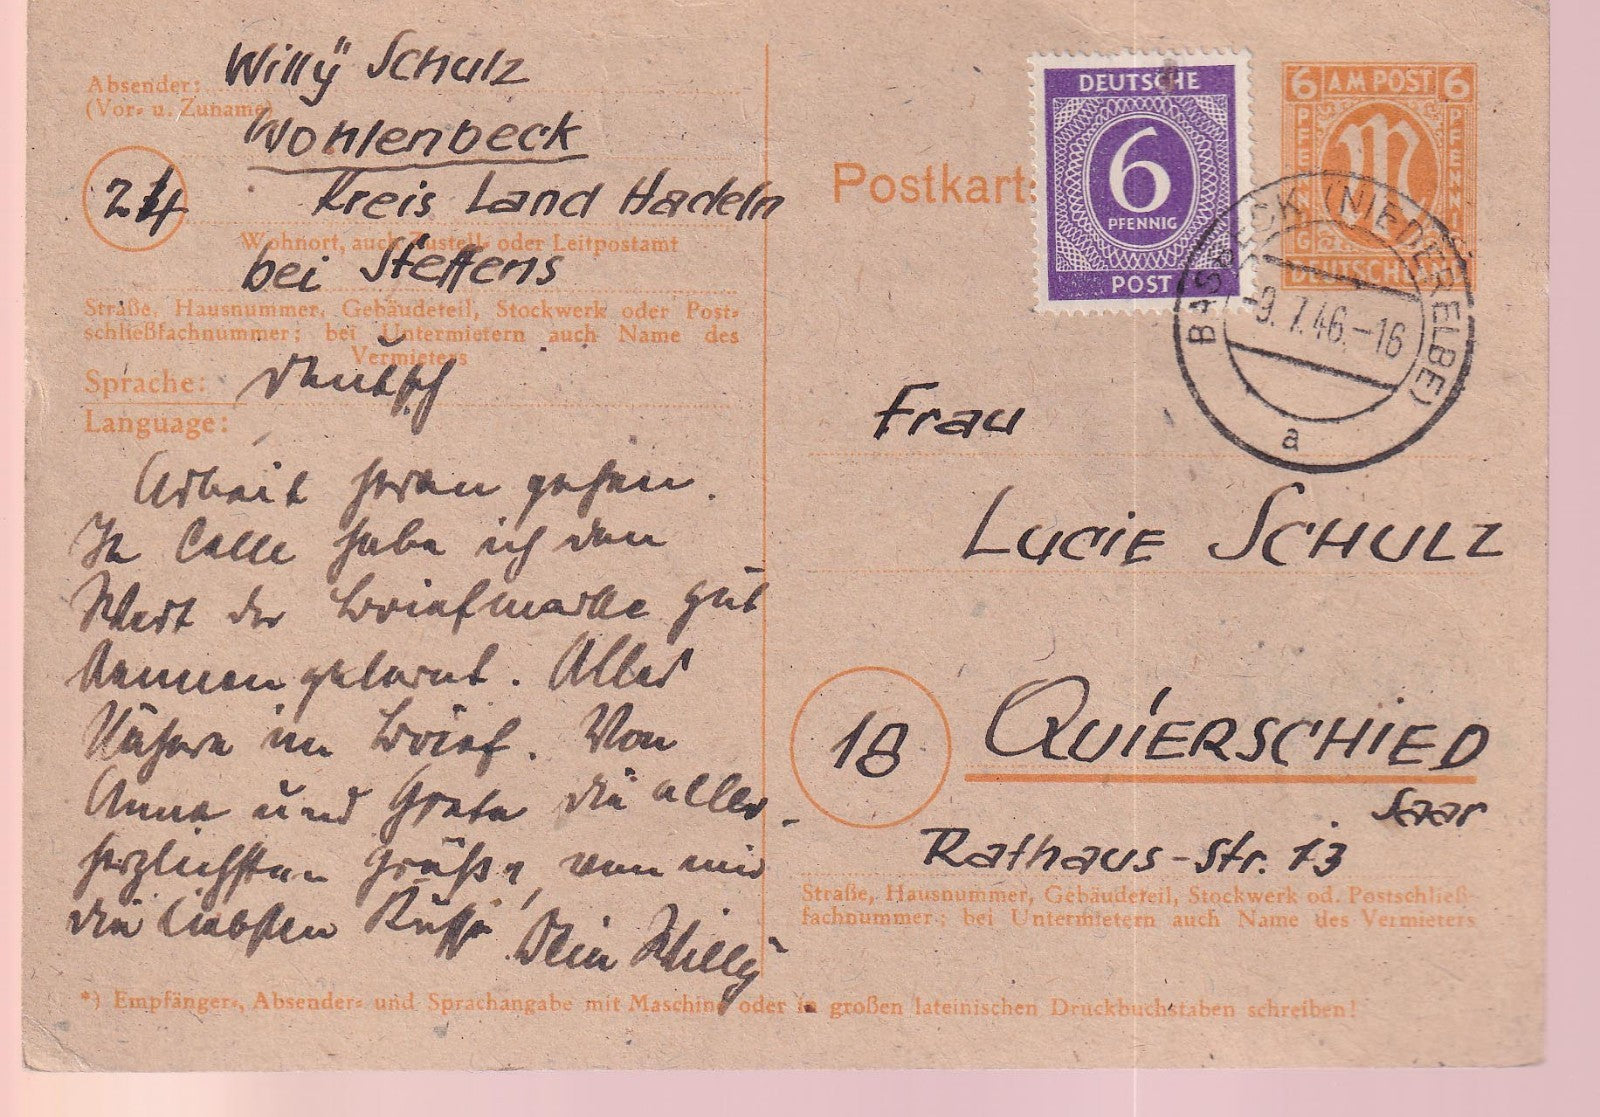 Absender:
(Vor- u. Zuname)
Willÿ Schulz
Wohlenbeck
24
Kreis Land Hadeln
Wohnort, auch Zustell- oder Leitpostamt
bei Steffens
Straße, Hausnummer, Gebäudeteil, Stockwerk oder Post-
schließfachnummer; bei Untermietern auch Name des
Vermieters
Sprache: deutsch
Language:
Arbeit heran gehen.
In Celle habe ich den
Wert der Briefmarke gut
kennen gelernt. Alles
Nähere im Brief. Von
Anna und Grete die aller-
herzlichsten Grüße, von mir
die liebsten Küsse Dein Willÿ
*) Empfänger-, Absender- und Sprachangabe mit Maschine oder in großen lateinischen Druckbuchstaben schreiben!
Postkart
DEUTSCHE
6
PFENNIG
POST
6 AM POST 6
PFENNIG
PFENNIG
M
DEUTSCHLAND
BASBECK (NIEDERELBE)
-9.7.46.-16
a
Frau
Lucie Schulz
18
Quierschied
Saar
Rathaus-Str. 13
Straße, Hausnummer, Gebäudeteil, Stockwerk od. Postschließ-
fachnummer; bei Untermietern auch Name des Vermieters